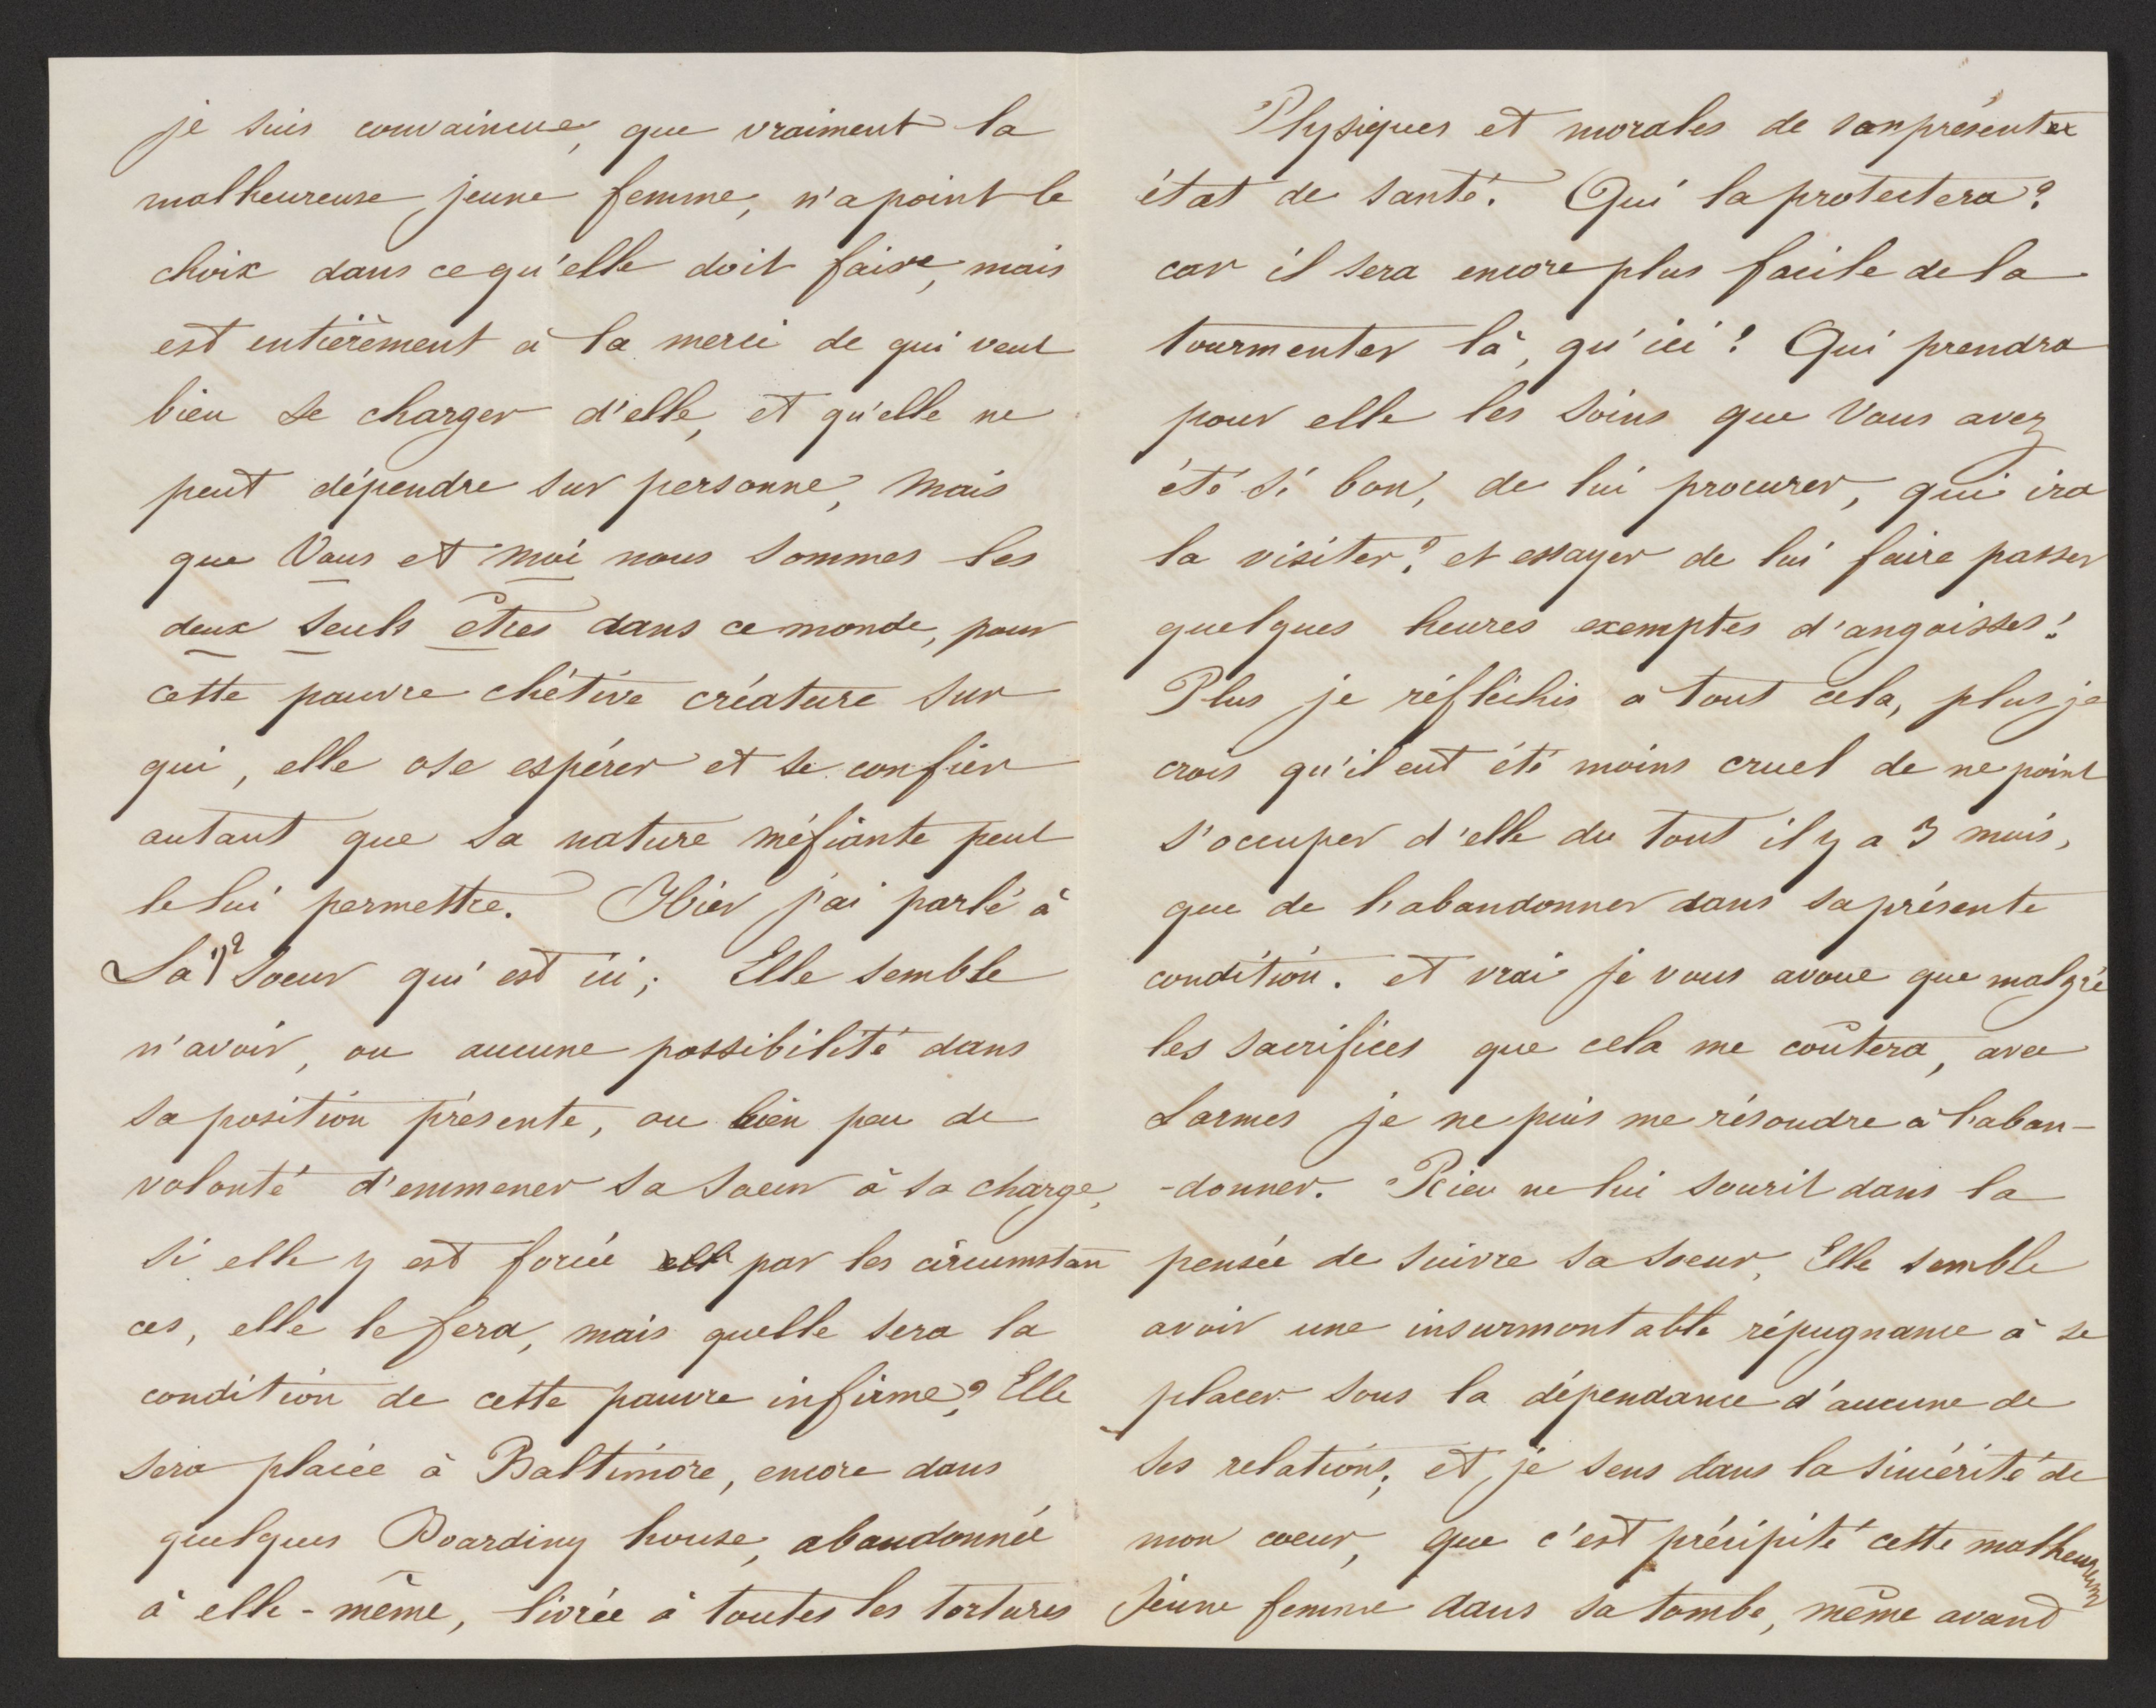 je suis convaincue, que vraiment la
malheureuse jeune femme, n'a point le
choix dans ce qu'elle doit faire, mais
est entièrement à la merci de qui veut
bien se charger d'elle, et qu'elle ne
peut dépendre sur personne, mais
que Vous et moi nous sommes les
deux seuls êtres dans ce monde, pour
cette pauvre chétive créature sur
qui, elle ose espérer et se confier
autant que sa nature méfiante peut
le lui permettre. Hier j'ai parlé à
Sa soeur qui est ici; Elle semble
n'avoir, ou aucune possibilité dans
sa position présente, ou bien peu de
volonté d'emmener sa soeur à sa charge,
si elle y est forcée par les circumstan
ces, elle le fera, mais quelle sera la
condition de cette pauvre infirme? Elle
sera placée à Baltimore, encore dans
quelques Boarding house, abandonnée
à elle-même, livrée à toutes les tortures
Physiques et morales de son présent
état de santé. Qui la protectera?
car il sera encore plus facile de la
tourmenter là, qu'ici! Qui prendra
pour elle les soins que Vous avez
été si bon, de lui procurer, qui ira
la visiter? et essayer de lui faire passer
quelques heures exemptes d'angoisses!
Plus je réfléchis à tout cela, plus je
crois qu'il eut été moins cruel de ne point
s'occuper d'elle du tout il y a 3 mois,
que de l'abandonner dans sa présente
condition. et vrai je vous avoue que malgré
les sacrifices que cela me coûtera, avec
Larmes je ne puis me résoudre à l'aban-
-donner. Rien ne lui sourit dans la
pensée de suivre sa soeur, Elle semble
avoir une insurmontable répugnance à se
placer sous la dépendance d'aucune de
ses relations; et je sens dans la sincérité de
mon coeur, que c'est précipité cette malheureuse
jeune femme dans sa tombe, même avant